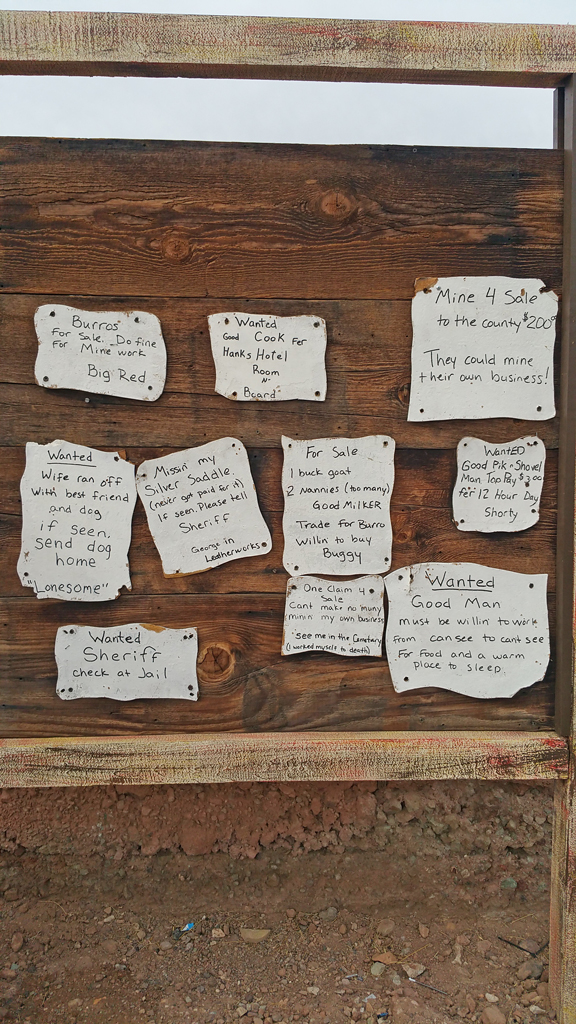 Burros
for Sale. Do fine
For Mine work
Big Red
Wanted
Good Cook Fer
Hanks Hotel
Room
N'
Board
Mine 4 Sale
to the county $200
They could mine
their own business!
Wanted
Wife ran off
With best friend
and dog
if seen,
send dog
home
"Lonesome"
Missin' my
Silver Saddle.
(never got paid for it)
If seen, Please tell
Sheriff
George in
Leatherworks
For Sale
1 buck goat
2 Nannies (too many)
Good MILKER
Trade for Burro
Willin to buy
Buggy
WantED
Good Pik n Shovel
Man Top Pay $3.00
fer 12 Hour Day
Shorty
Wanted
Sheriff
check at Jail
One Claim 4
Sale
Cant make no muny
minin my own business
See me in the Cemetary
(I worked myself to death)
Wanted
Good Man
must be willin to work
From can see to cant see
For Food and a warm
place to sleep.